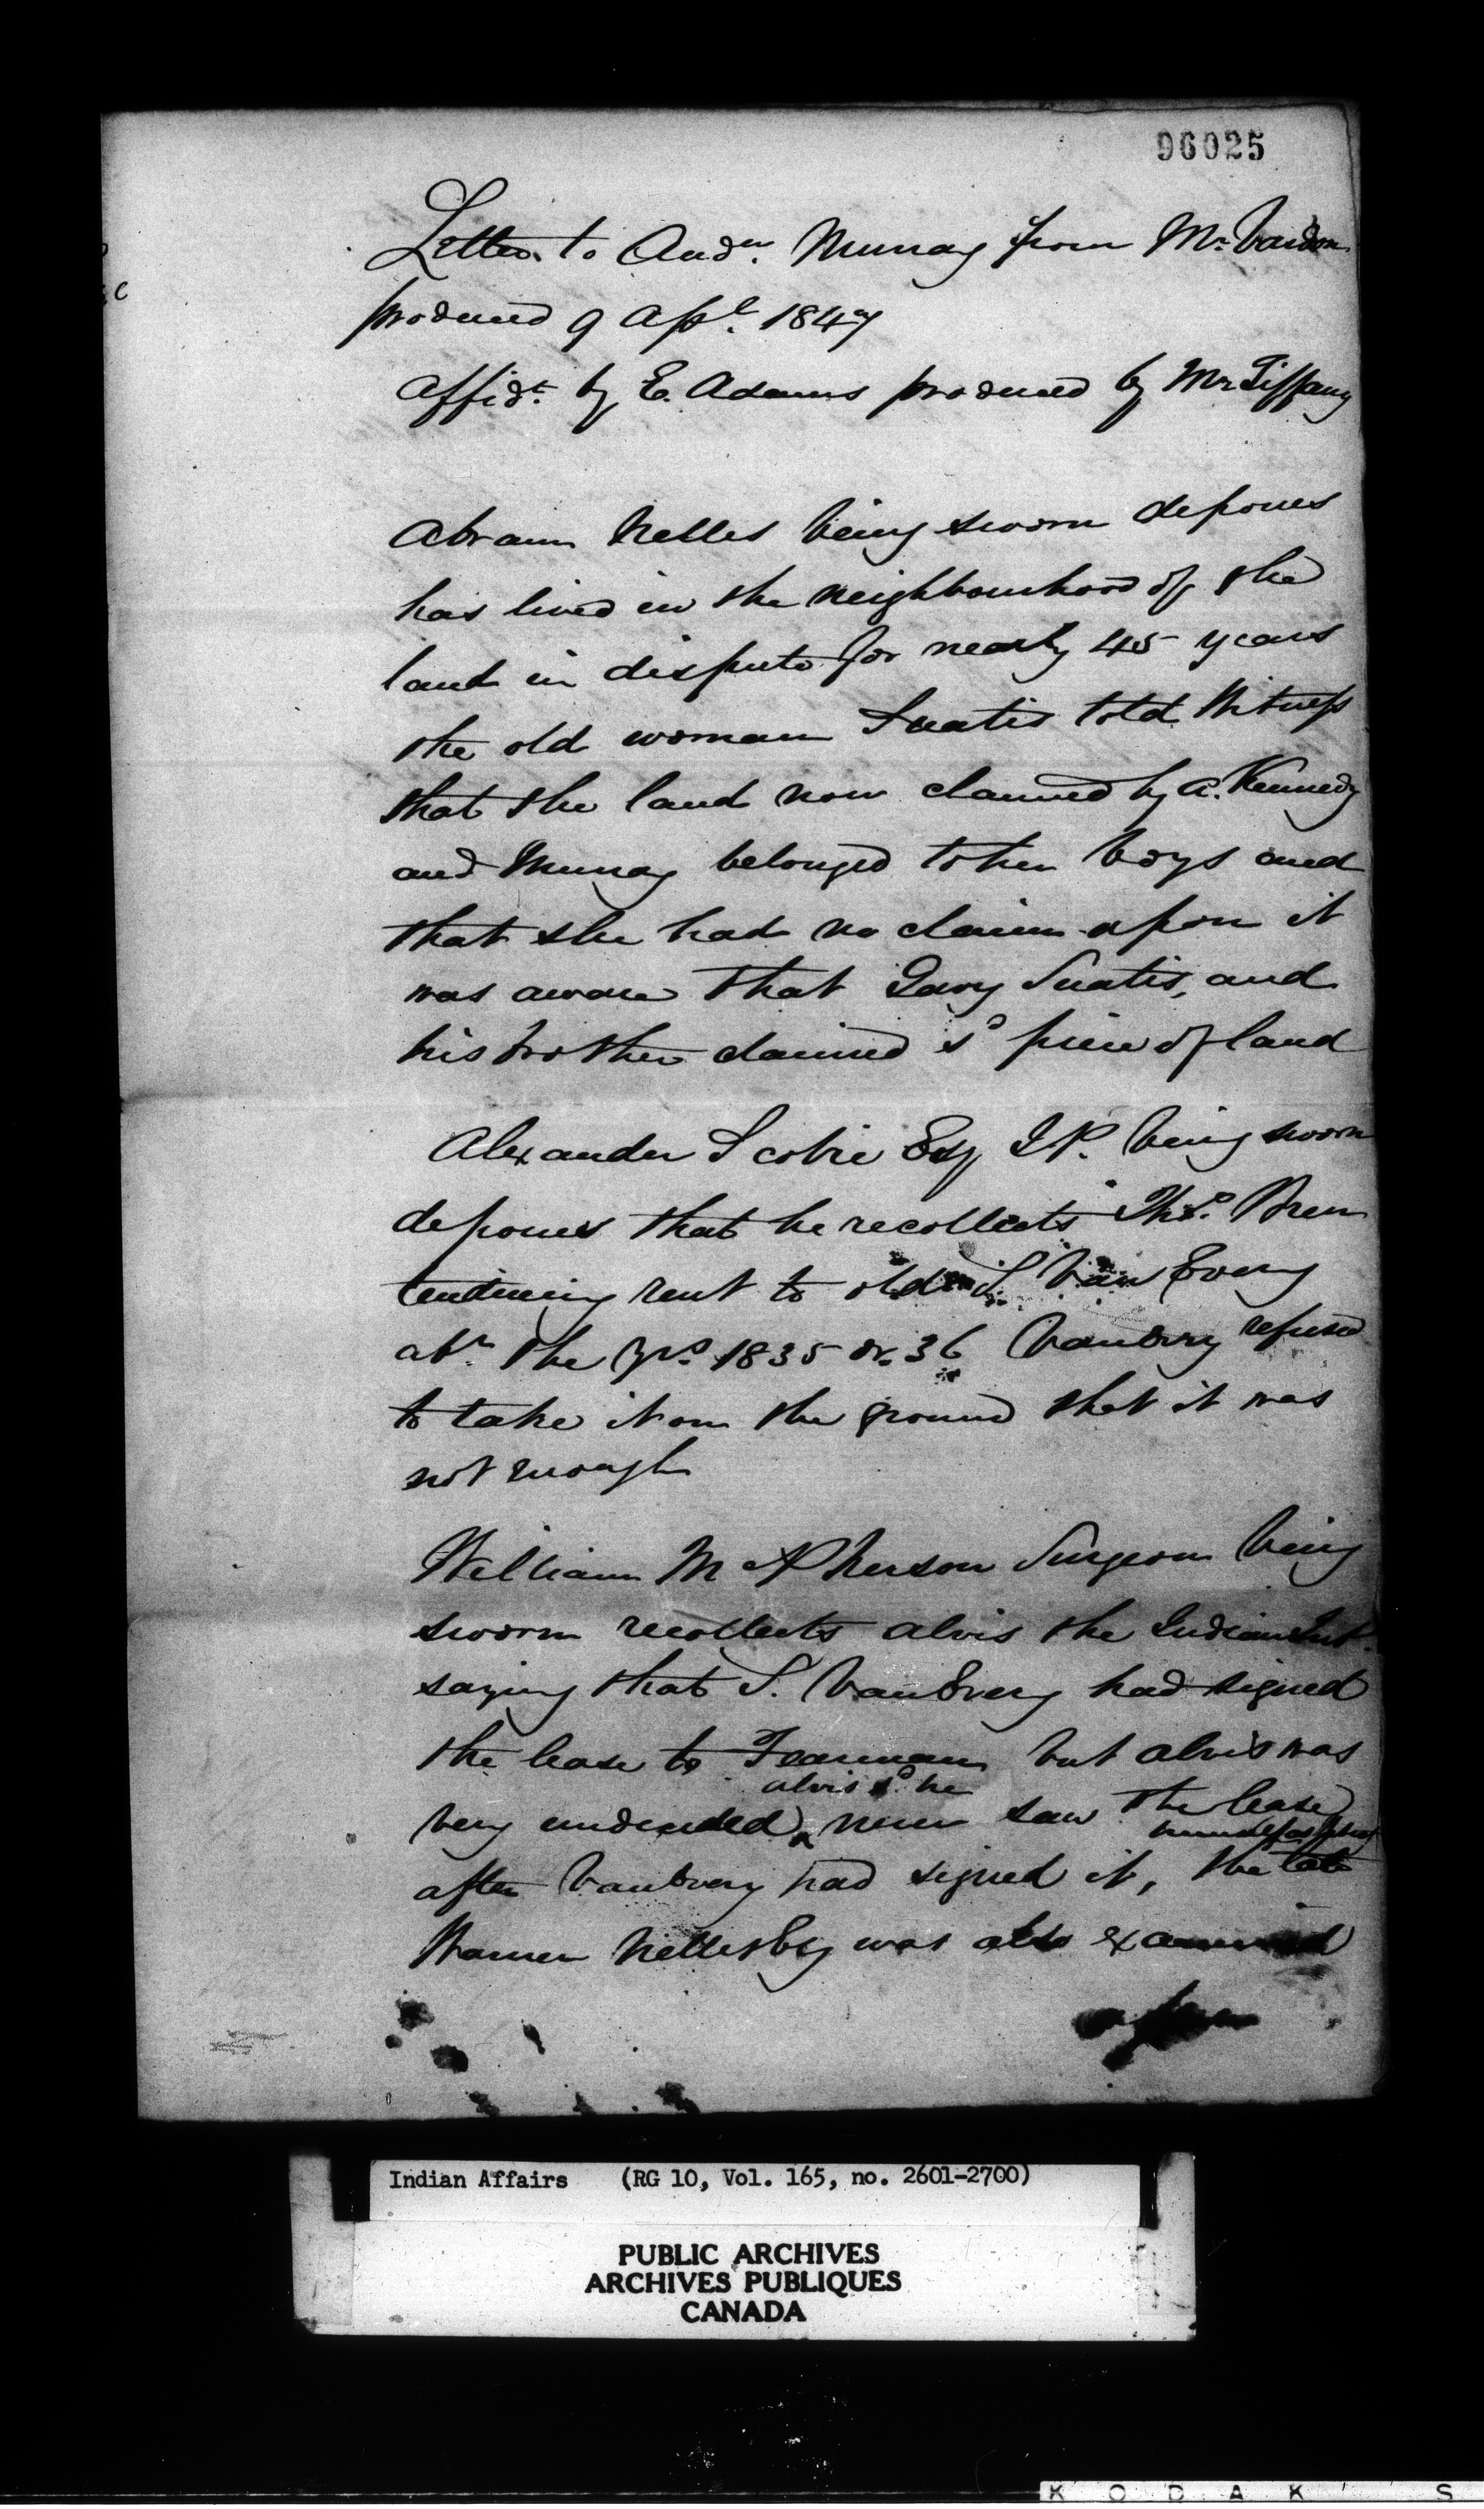 96025
Letter to Andw. Murray from Mr. Vardon
produced 9 Apl. 1847
Affidt. by E. Adams produced by Mr Tiffany
Abram Nelles being sworn depones
has lived in the neighbourhood of the
land in dispute for nearly 45 years
the old woman Suatis told Witness
that the land now claimed by A. Kennedy
and Murray belonged to her boys and
that she had no claim upon it
was aware that Davy Suatis, and
his brother claimed sd piece of land
Alexander Scobie Esq J.P. being sworn
depones that he recollects Ths. Bren
tendering rent to old S. Van Every
abt. the yrs. 1835 or 36 VanEvery refused
to take it on the ground that it was
not enough
William McPherson Surgeon being
sworn recollects Alvis the Indian Int.
saying that S. VanEvery had signed
the lease to Fearman but Alvis was
alvis sd. he
very undecided never saw the lease
himself
after VanEvery had signed it, the late
Warner Nelles Esq was also examined
Indian Affairs (RG 10, Vol. 165, no. 2601-2700)
PUBLIC ARCHIVES
ARCHIVES PUBLIQUES
CANADA
K O D A K S